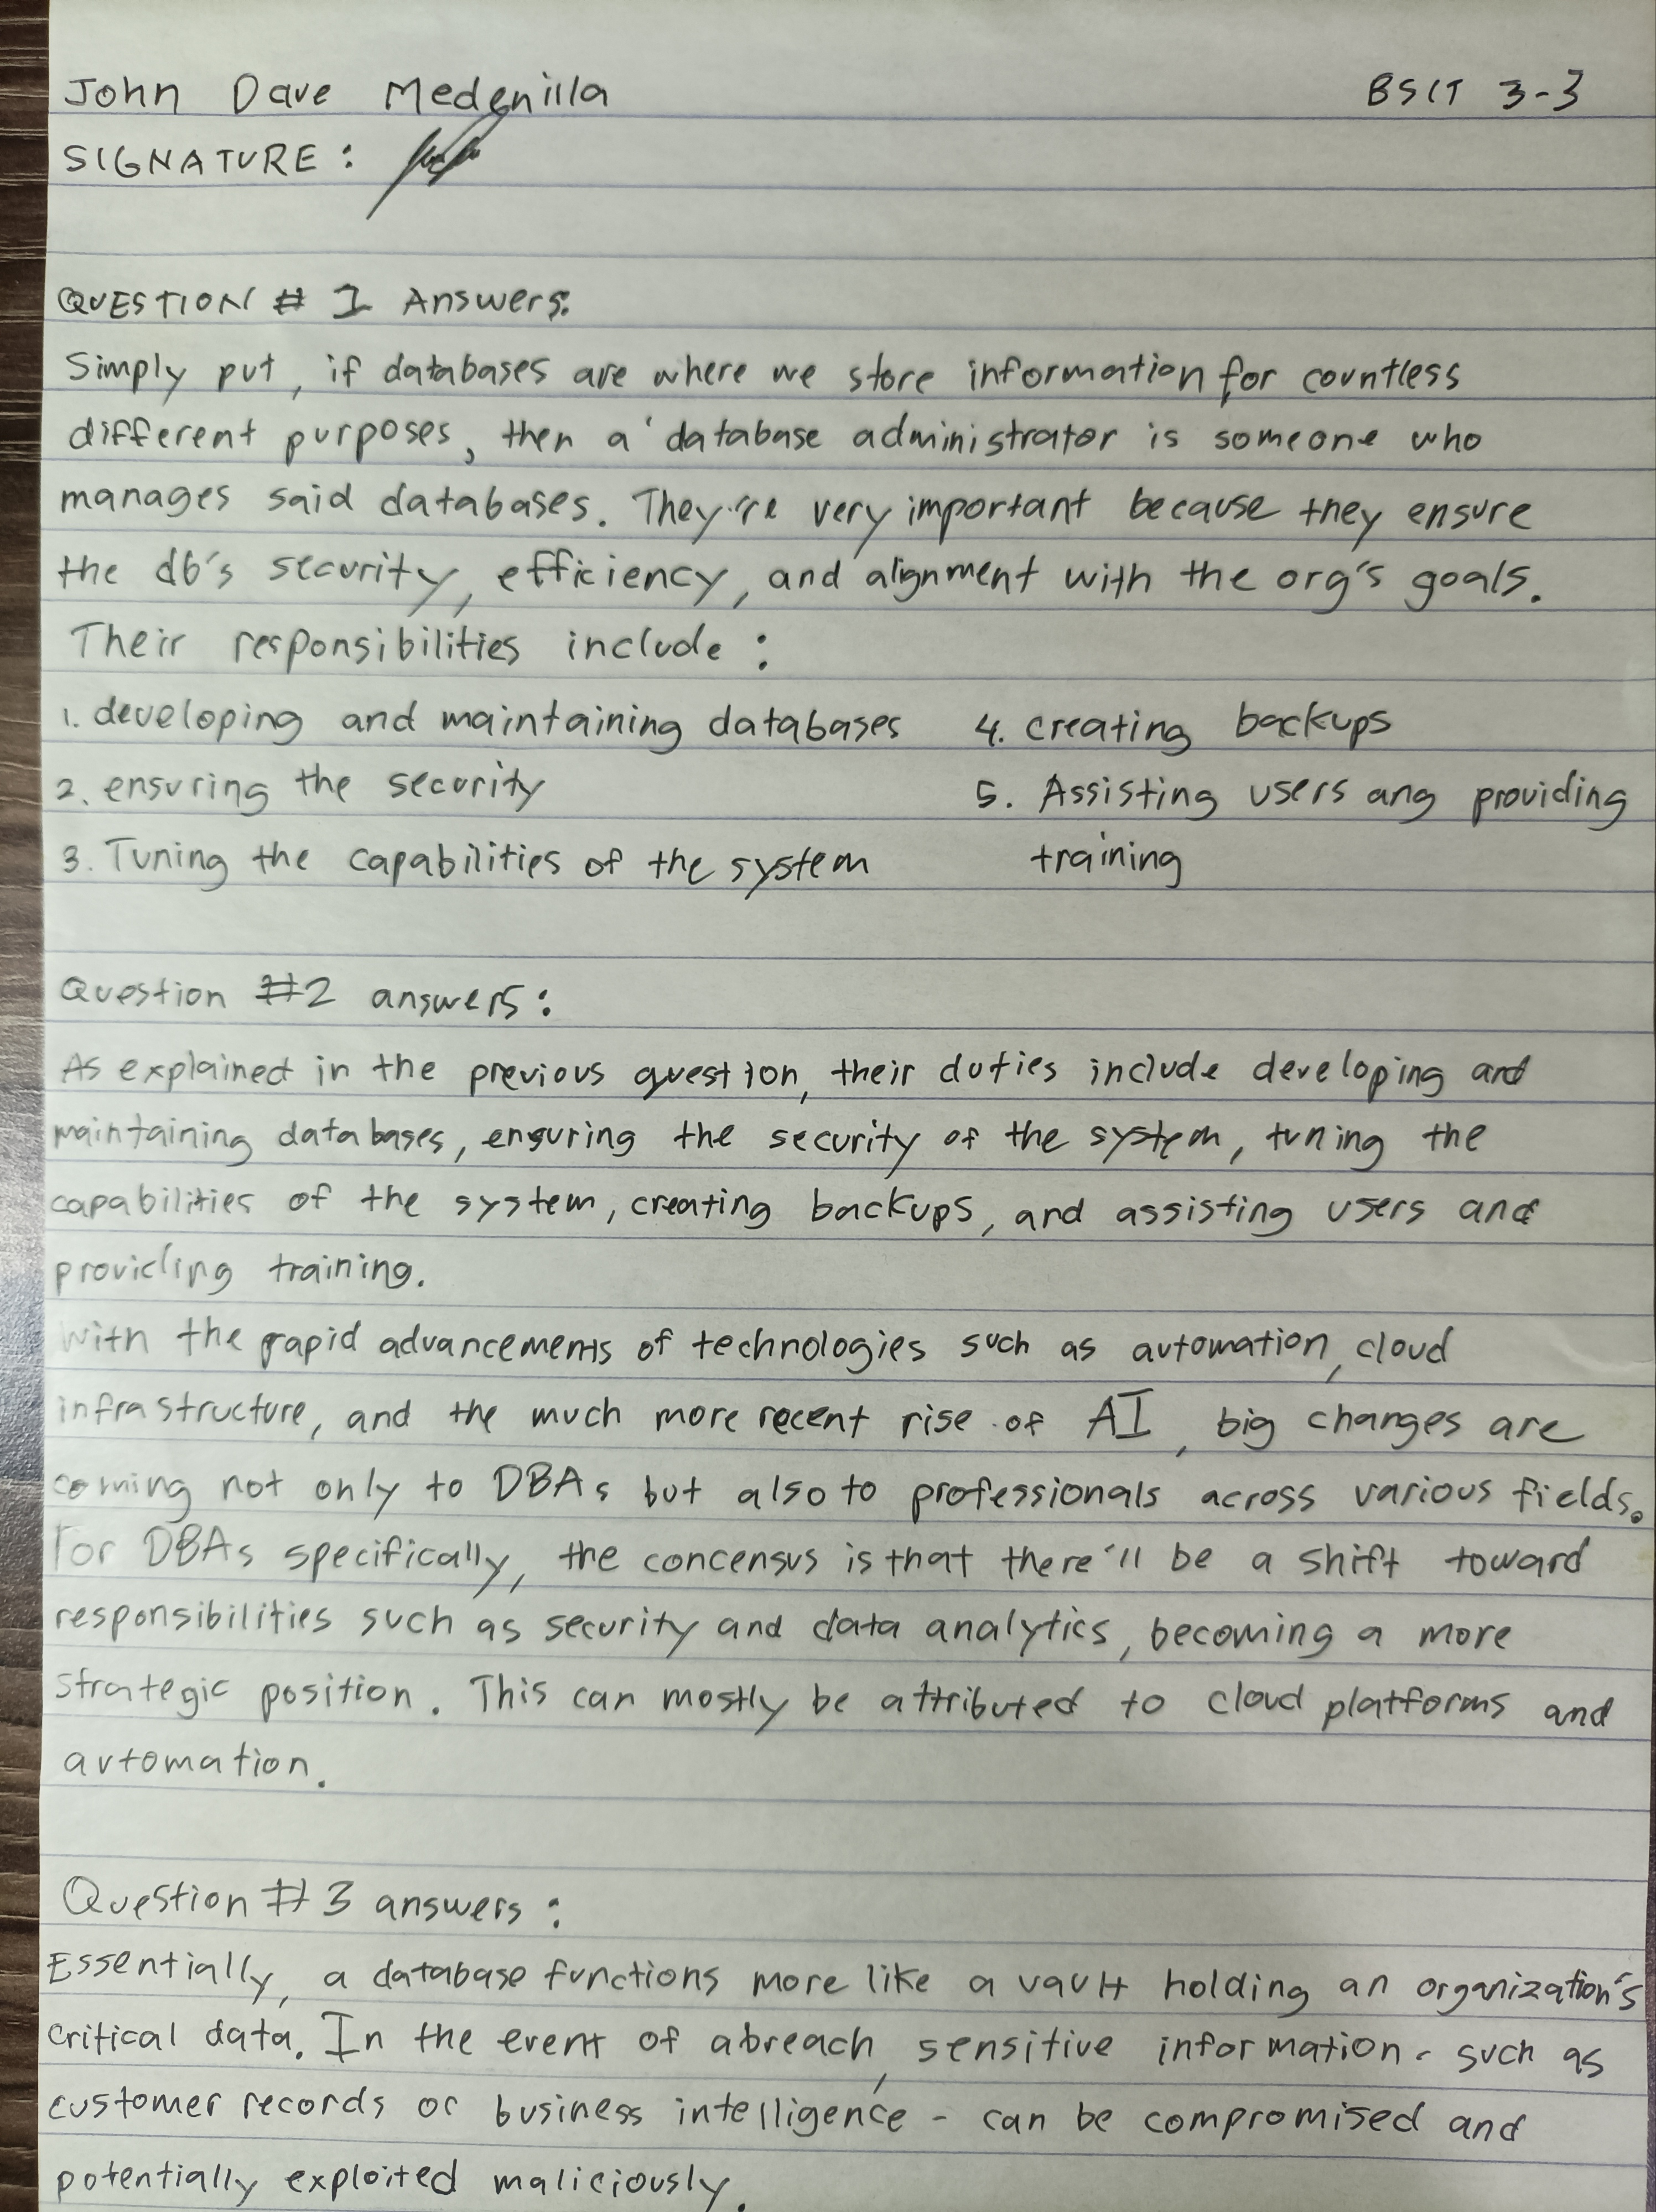 John Dave Medenilla BSIT 3-3
SIGNATURE:
QUESTION # 1 Answers:
Simply put, if databases are where we store information for countless
different purposes, then a database administrator is someone who
manages said databases. They're very important because they ensure
the db's security, efficiency, and alignment with the org's goals.
Their responsibilities include:
1. developing and maintaining databases 4. creating backups
2. ensuring the security 5. Assisting users ang providing
3. Tuning the capabilities of the system training
Question #2 answers:
As explained in the previous question, their duties include developing and
maintaining databases, ensuring the security of the system, tuning the
capabilities of the system, creating backups, and assisting users and
providing training.
With the rapid advancements of technologies such as automation, cloud
infrastructure, and the much more recent rise of AI, big changes are
coming not only to DBAs but also to professionals across various fields.
For DBAs specifically, the concensus is that there'll be a shift toward
responsibilities such as security and data analytics, becoming a more
strategic position. This can mostly be attributed to cloud platforms and
automation.
Question #3 answers:
Essentially, a database functions more like a vault holding an organization's
critical data. In the event of a breach, sensitive information - such as
customer records or business intelligence - can be compromised and
potentially exploited maliciously.